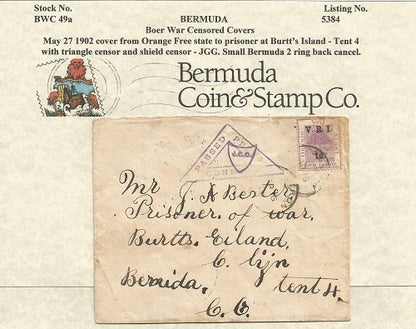 Stock No. BERMUDA Listing No.
BWC 49a 5384
Boer War Censored Covers
May 27 1902 cover from Orange Free state to prisoner at Burtt's Island - Tent 4
with triangle censor and shield censor - JGG. Small Bermuda 2 ring back cancel.
Bermuda
Coin&Stamp Co.
PASSED
V.R.I.
1d
Mr J. A Bester
Prisoner of war.
Burtts Eiland.
C. lijn
Bermuda, tent 4.